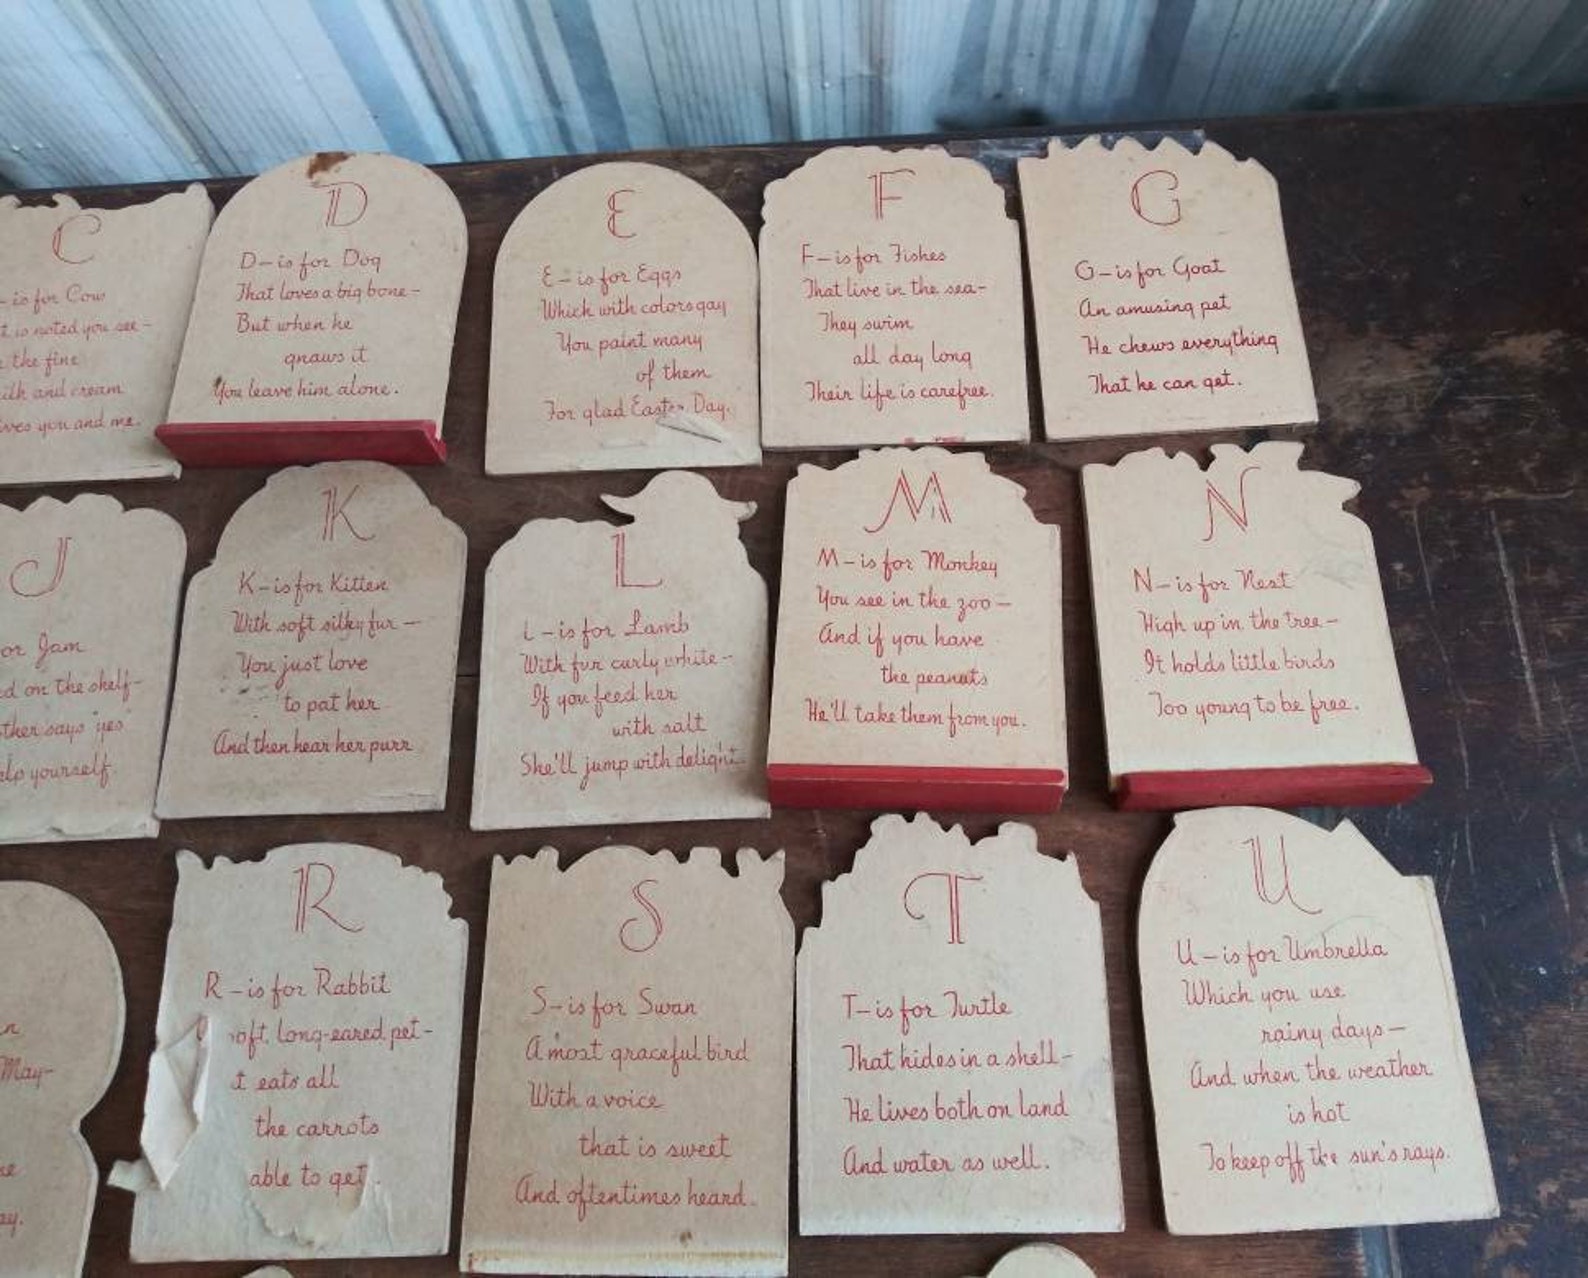 C
is for Cow
t is noted you see —
the fine
ilk and cream
ives you and me.
D
D — is for Dog
That loves a big bone —
But when he
gnaws it
You leave him alone.
E
E — is for Eggs
Which with colors gay
You paint many
of them
For glad Easter Day.
F
F — is for Fishes
That live in the sea —
They swim
all day long
Their life is carefree.
G
G — is for Goat
An amusing pet
He chews everything
That he can get.
J
or Jam
d on the shelf —
ther says "yes"
elp yourself.
K
K — is for Kitten
With soft silky fur —
You just love
to pat her
And then hear her purr
L
L — is for Lamb
With fur curly white —
If you feed her
with salt
She'll jump with delight.
M
M — is for Monkey
You see in the zoo —
And if you have
the peanuts
He'll take them from you.
N
N — is for Nest
High up in the tree —
It holds little birds
Too young to be free.
n
May —
ay.
R
R — is for Rabbit
oft, long-eared pet —
t eats all
the carrots
able to get.
S
S — is for Swan
A most graceful bird
With a voice
that is sweet
And oftentimes heard.
T
T — is for Turtle
That hides in a shell —
He lives both on land
And water as well.
U
U — is for Umbrella
Which you use
rainy days —
And when the weather
is hot
To keep off the sun's rays.